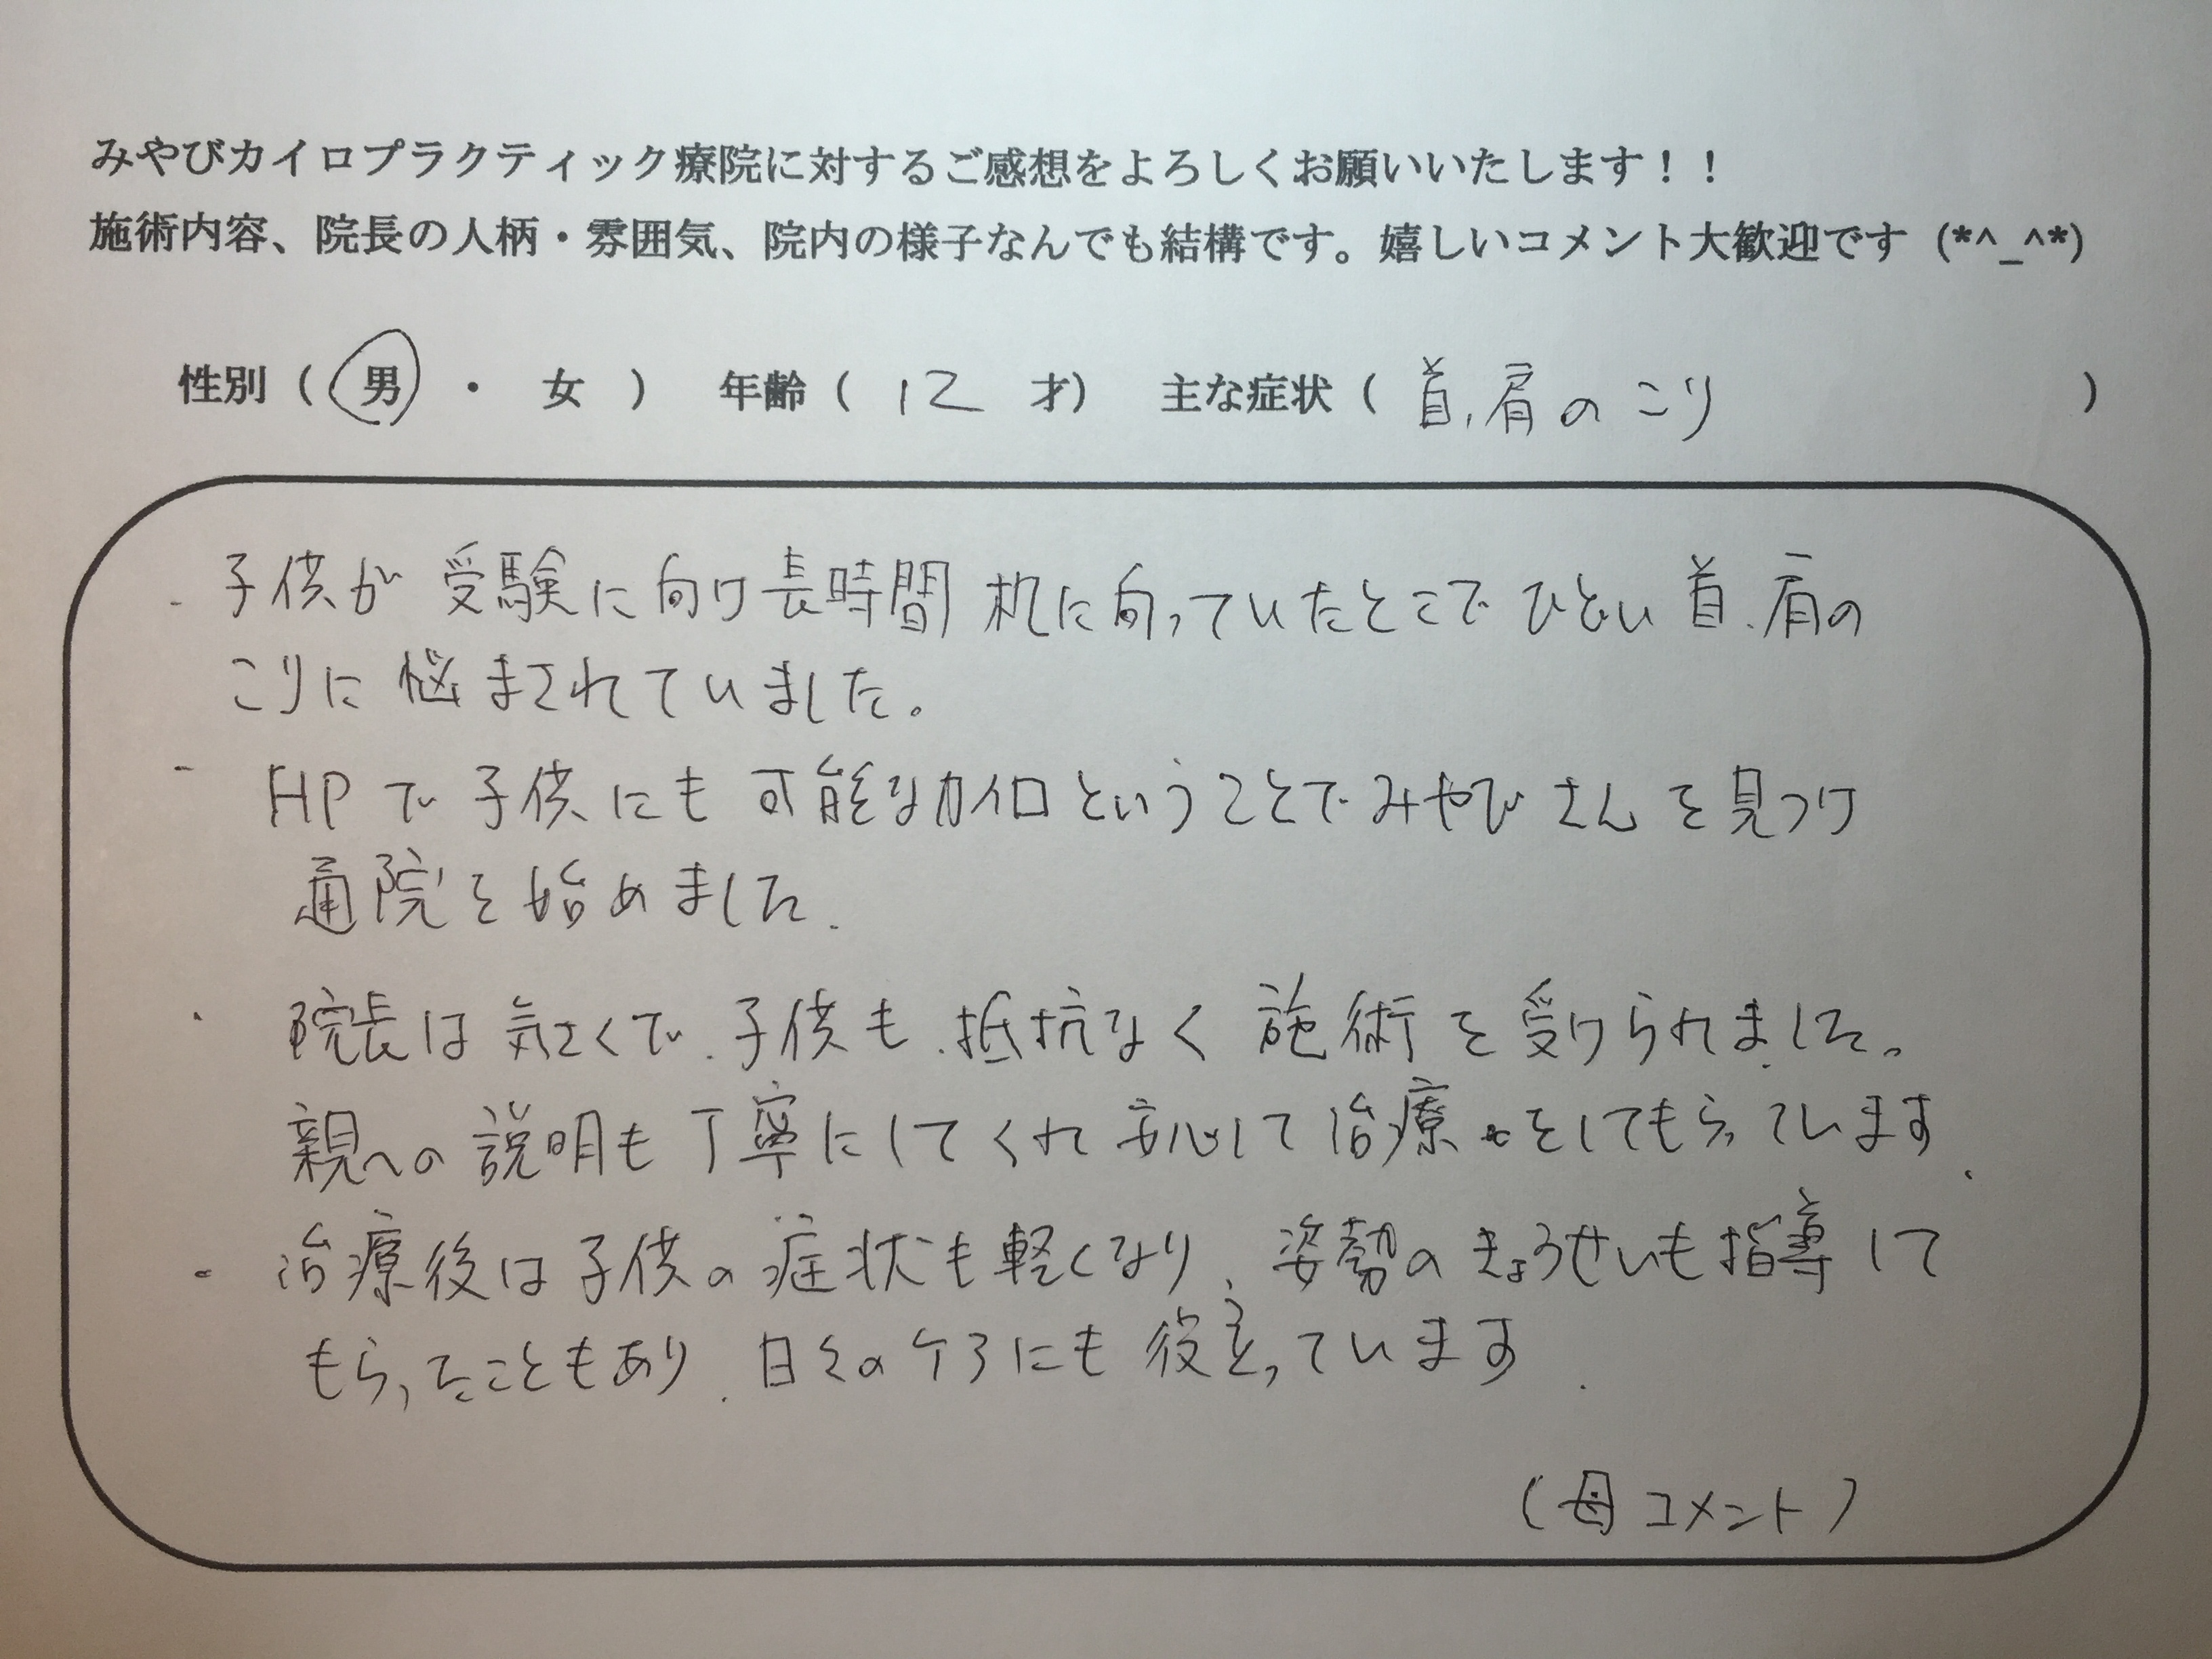 みやびカイロプラクティック療院に対するご感想をよろしくお願いいたします！！
施術内容、院長の人柄・雰囲気、院内の様子なんでも結構です。嬉しいコメント大歓迎です (*^_^*)
性別（ 男 ・ 女 ） 年齢（ 12 才） 主な症状（ 首、肩のこり ）
・子供が受験に向け長時間机に向っていたとこでひどい首、肩の
こりに悩まされていました。
・HPで子供にも可能なカイロということでみやびさんを見つけ
通院を始めました。
・院長は気さくで、子供も、抵抗なく施術を受けられました。
親への説明も丁寧にしてくれ安心して治療をしてもらっています。
・治療後は子供の症状も軽くなり、姿勢のきょうせいも指導して
もらったこともあり、日々のケアにも役立っています。
（母コメント）